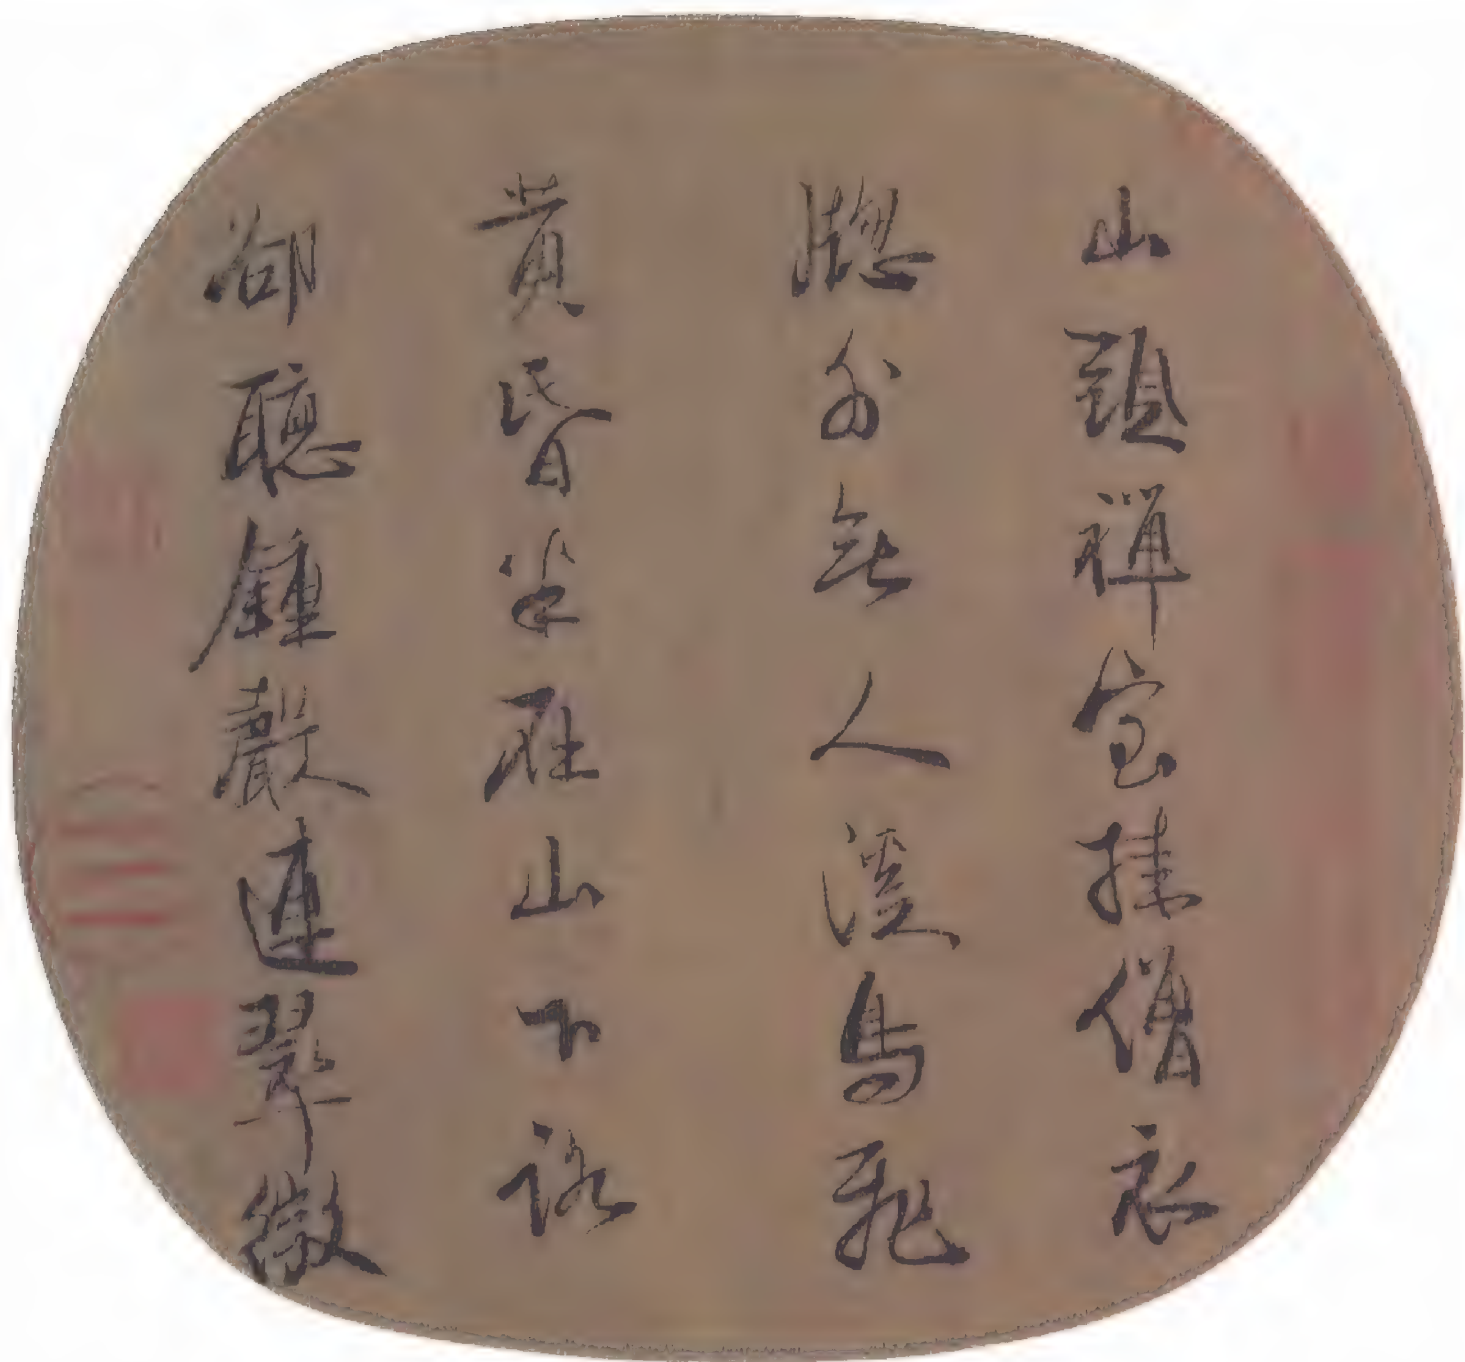 山頭禪室挂僧衣
牕外無人溪鳥飛
黃昬半在山下路
卻聽鍾聲連翠微